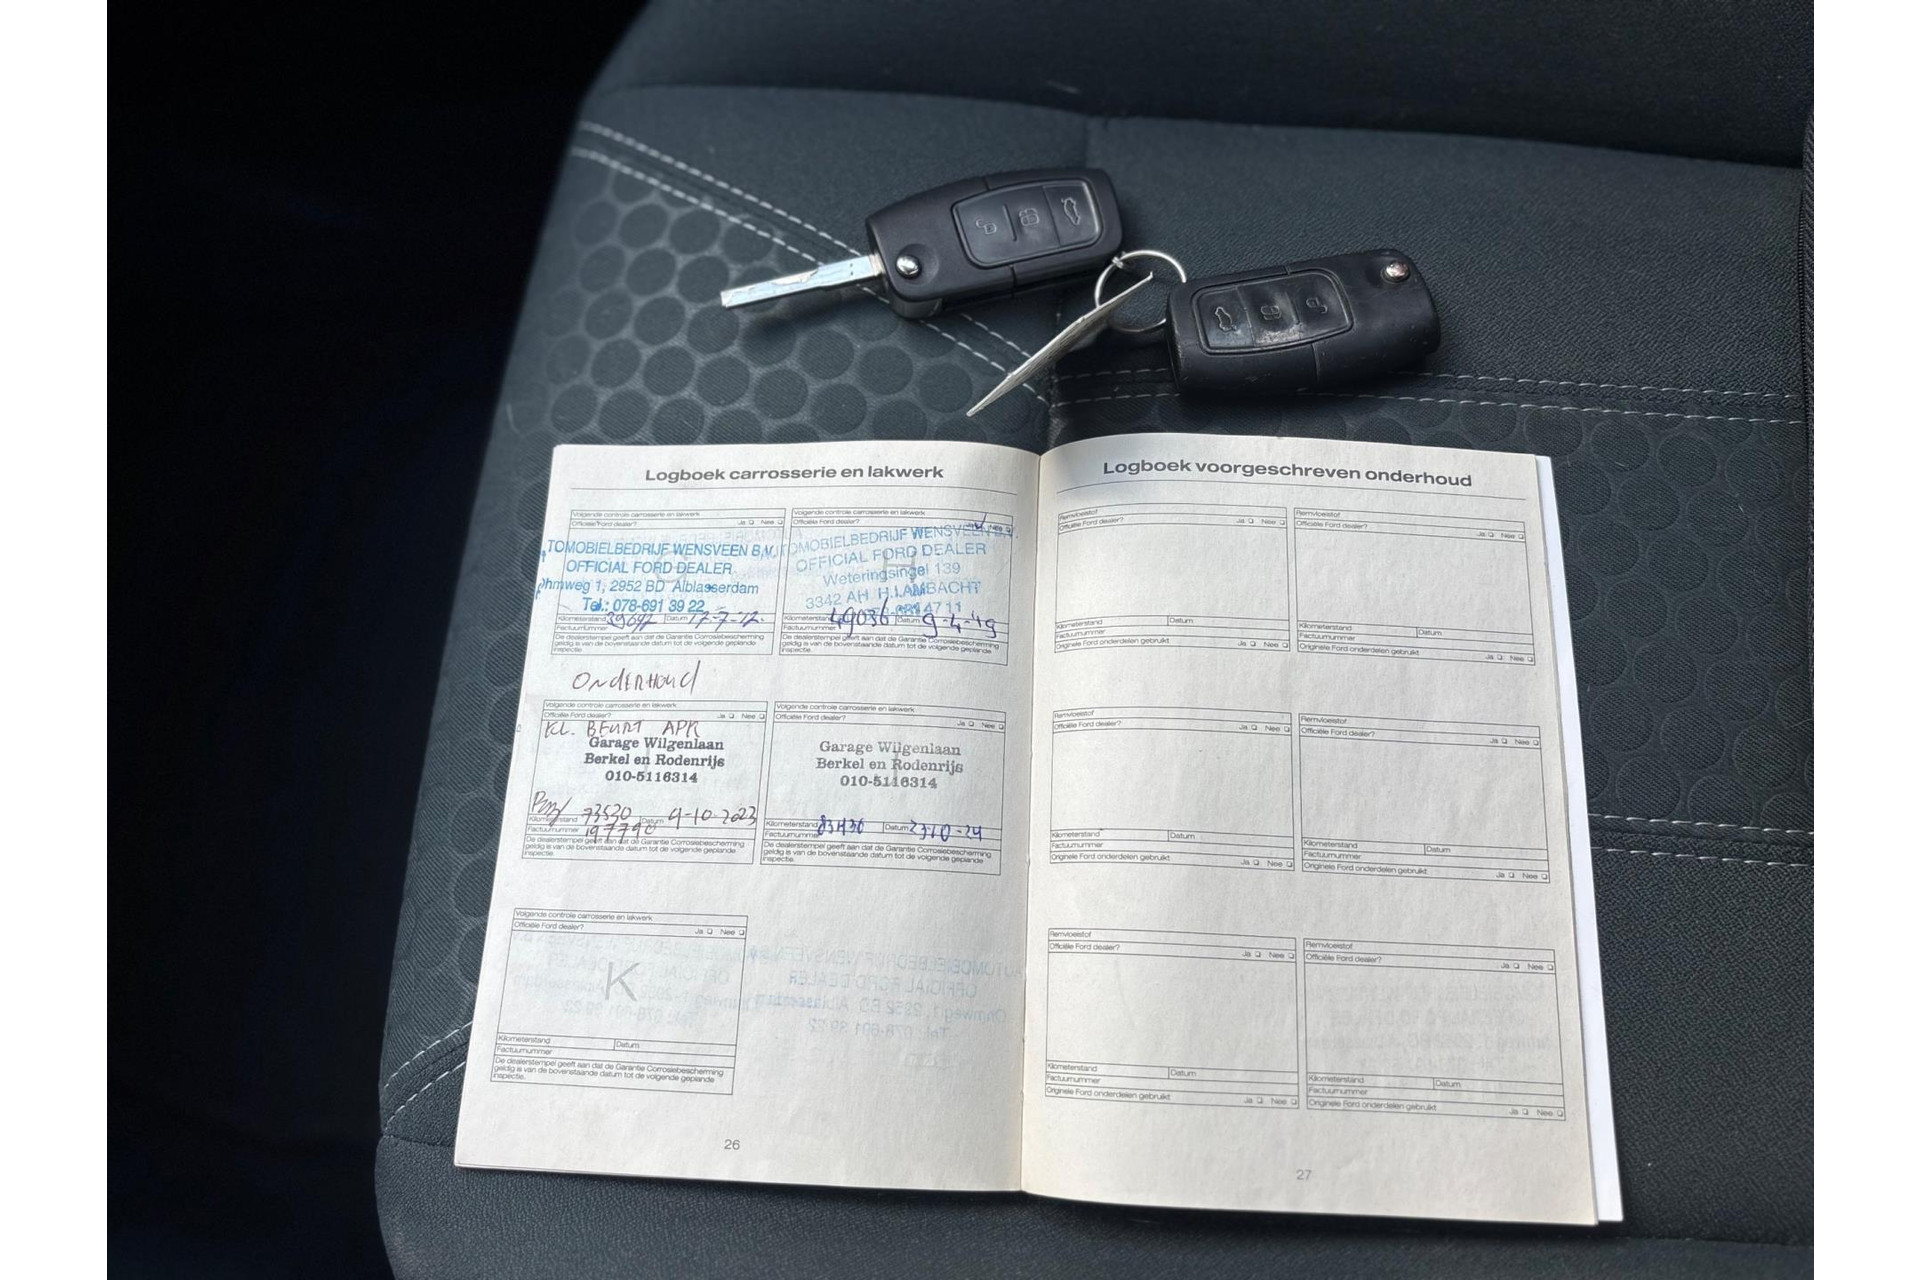 Logboek carrosserie en lakwerk
Volgende controle carrosserie en lakwerk
Officiële Ford dealer? Ja Nee
TOMOBIELBEDRIJF WENSVEEN B.V.
OFFICIAL FORD DEALER
Ohmweg 1, 2952 BD Alblasserdam
Tel.: 078-691 39 22
Kilometerstand Datum 17-7-17
Factuurnummer
De dealerstempel geeft aan dat de Garantie Corrosiebescherming
geldig is van de bovenstaande datum tot de volgende geplande
inspectie.
Volgende controle carrosserie en lakwerk
Officiële Ford dealer? Nee
TOMOBIELBEDRIJF WENSVEEN B.V.
OFFICIAL FORD DEALER
Weteringsingel 139
3342 AH H.I.AMBACHT
Kilometerstand 49036 Datum 9-4-19
Factuurnummer
De dealerstempel geeft aan dat de Garantie Corrosiebescherming
geldig is van de bovenstaande datum tot de volgende geplande
inspectie.
ONDERHOUD
Volgende controle carrosserie en lakwerk
Officiële Ford dealer? Ja Nee
KL. BEURT APK
Garage Wilgenlaan
Berkel en Rodenrijs
010-5116314
Kilometerstand 73530 Datum 9-10-2023
Factuurnummer 197790
De dealerstempel geeft aan dat de Garantie Corrosiebescherming
geldig is van de bovenstaande datum tot de volgende geplande
inspectie.
Volgende controle carrosserie en lakwerk
Officiële Ford dealer? Ja Nee
Garage Wilgenlaan
Berkel en Rodenrijs
010-5116314
Kilometerstand 83430 Datum 2310-24
Factuurnummer
De dealerstempel geeft aan dat de Garantie Corrosiebescherming
geldig is van de bovenstaande datum tot de volgende geplande
inspectie.
Volgende controle carrosserie en lakwerk
Officiële Ford dealer? Ja Nee
K
Kilometerstand Datum
Factuurnummer
De dealerstempel geeft aan dat de Garantie Corrosiebescherming
geldig is van de bovenstaande datum tot de volgende geplande
inspectie.
26
Logboek voorgeschreven onderhoud
Remvloeistof
Officiële Ford dealer? Ja Nee
Kilometerstand Datum
Factuurnummer
Originele Ford onderdelen gebruikt Ja Nee
Remvloeistof
Officiële Ford dealer? Ja Nee
Kilometerstand Datum
Factuurnummer
Originele Ford onderdelen gebruikt Ja Nee
Remvloeistof
Officiële Ford dealer? Ja Nee
Kilometerstand Datum
Factuurnummer
Originele Ford onderdelen gebruikt Ja Nee
Remvloeistof
Officiële Ford dealer? Ja Nee
Kilometerstand Datum
Factuurnummer
Originele Ford onderdelen gebruikt Ja Nee
Remvloeistof
Officiële Ford dealer? Ja Nee
Kilometerstand Datum
Factuurnummer
Originele Ford onderdelen gebruikt Ja Nee
Remvloeistof
Officiële Ford dealer? Ja Nee
Kilometerstand Datum
Factuurnummer
Originele Ford onderdelen gebruikt Ja Nee
27